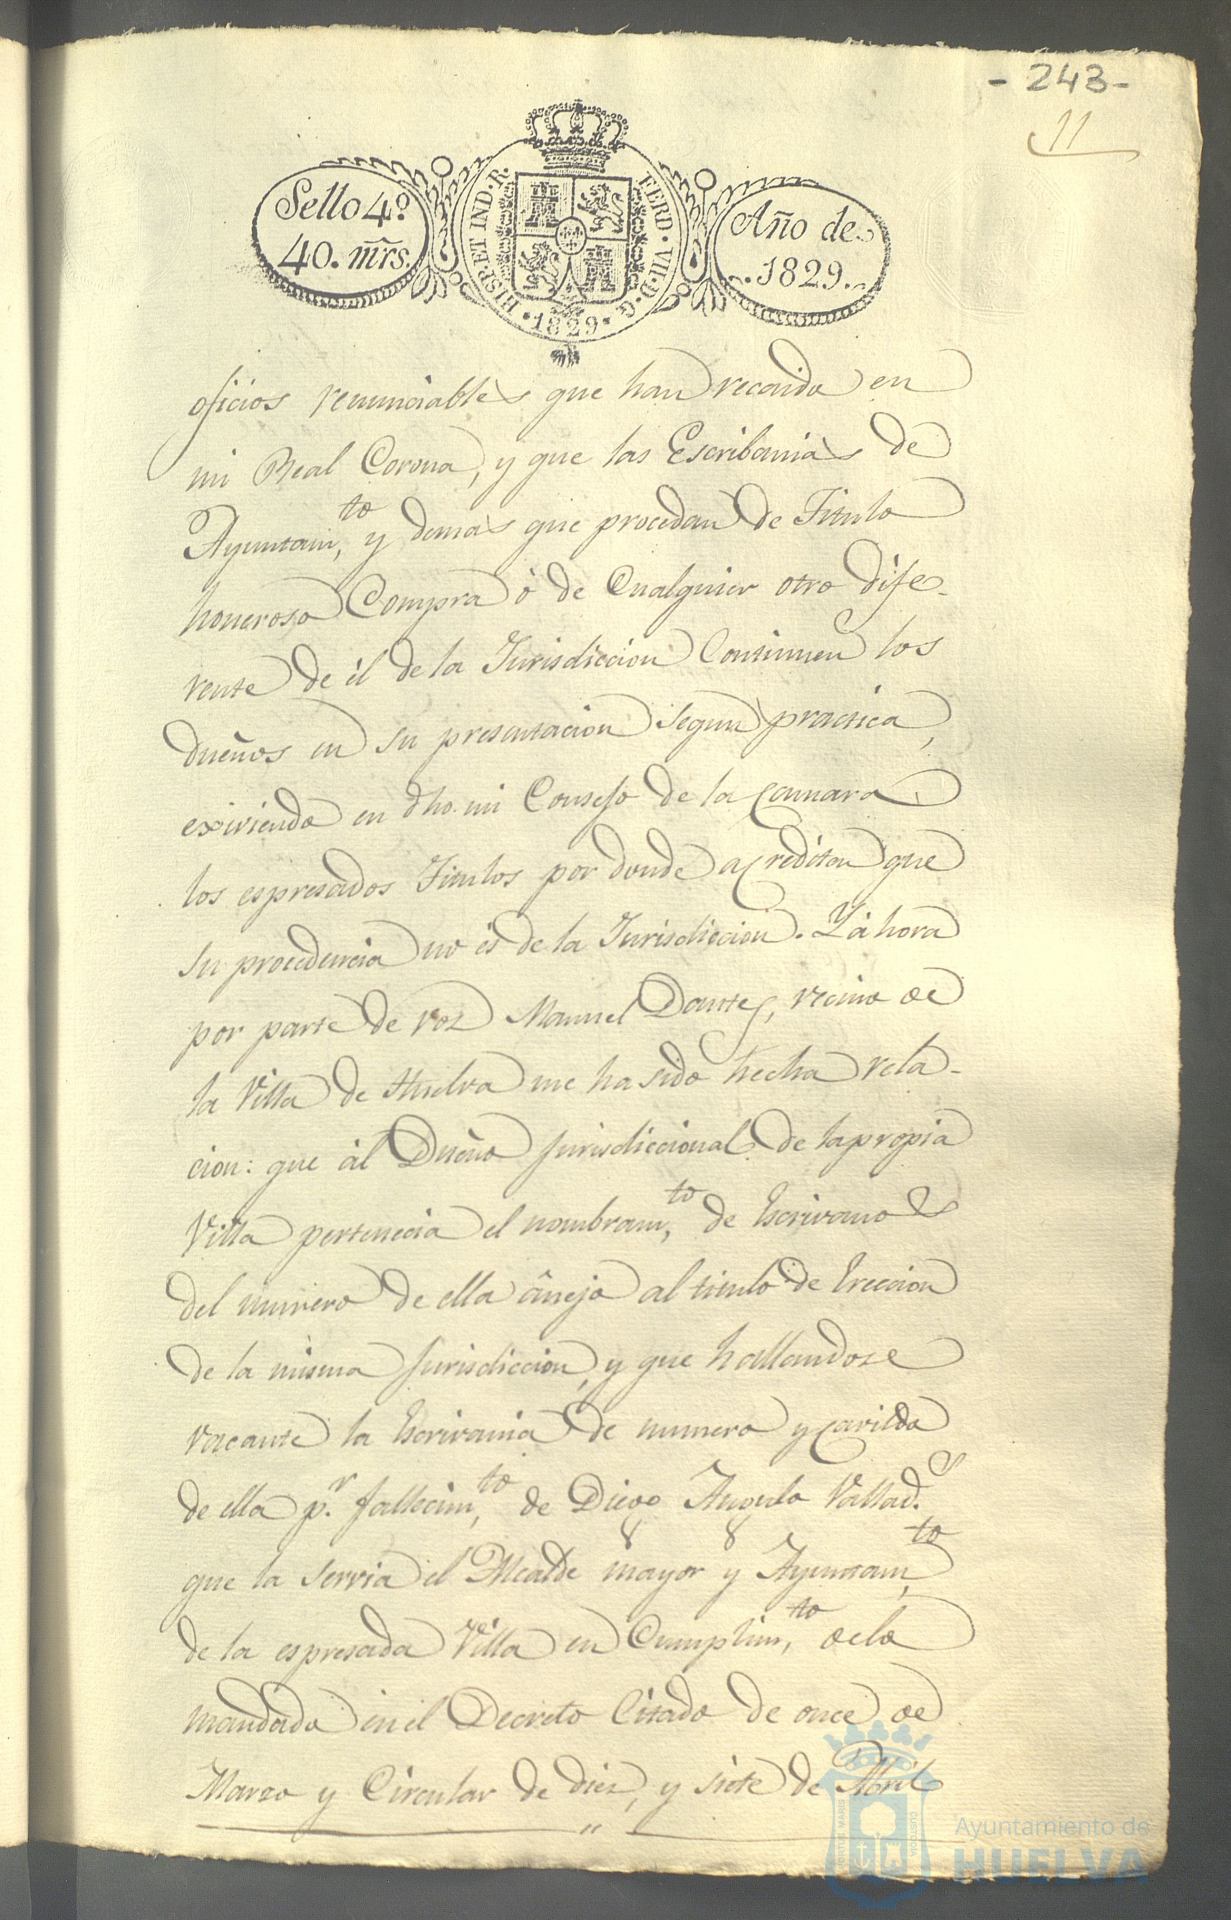 - 243 -
11
Sello 4º
40. mrs.
HISP. ET IND. R.
FERD. VII. D. G.
1829
Año de
1829.
oficios renunciables que han recaido en
mi Real Corona, y que las Escribanias de
Ayuntam,to y demas que procedan de Titulo
honeroso Compra ó de Cualquier otro dife-
rente de él de la Jurisdiccion Continuen los
dueños en su presentacion segun practica,
exiviendo en dho. mi Consejo de la Camara
los espresados Titulos por donde acrediten que
su procedencia no és de la Jurisdiccion. Y áhora
por parte de voz Manuel Dantes, vecino de
la Villa de Huelva me ha sido hecha rela-
cion: que ál Dueño Jurisdiccional de la propia
Villa pertenecia el nombram,to de Escrivano
del numero de ella ánejo al titulo de Ereccion
de la misma Jurisdiccion, y que hallandose
vacante la Escrivania de numero y Cavildo
de ella p.r fallecim,to de Diego Angulo Vallad.s
que la servia el Alcalde mayor y Ayuntam,to
de la espresada Villa en Cumplim,to de lo
mandado en el Decreto Citado de once de
Marzo y Circular de diez, y siete de Abril
Ayuntamiento de
HUELVA